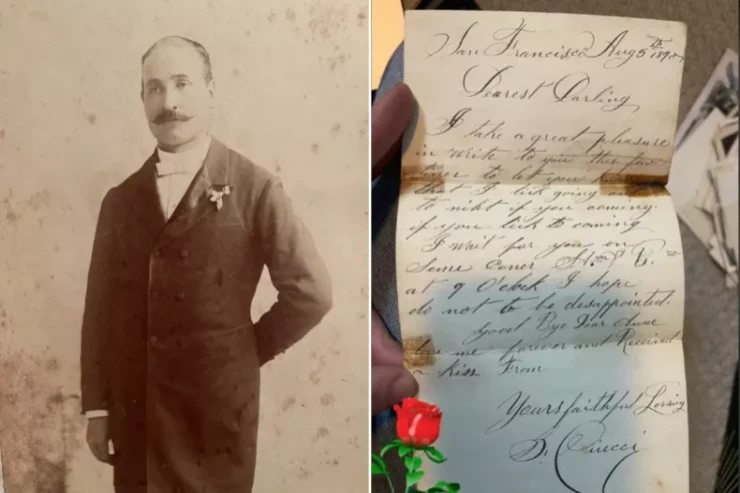 San Francisco Aug 5th 1890
Dearest Darling
I take a great pleasure
in write to you this few
to let you
that I lick going
to niht if you coming
if you lick to coming
I wait for you on
Same coner St.
at 9 O'clock I hope
do not to be disappointed.
Good Bye Dear
love me forever and Received
a kiss From
Yours faithful Loving
Ciucci